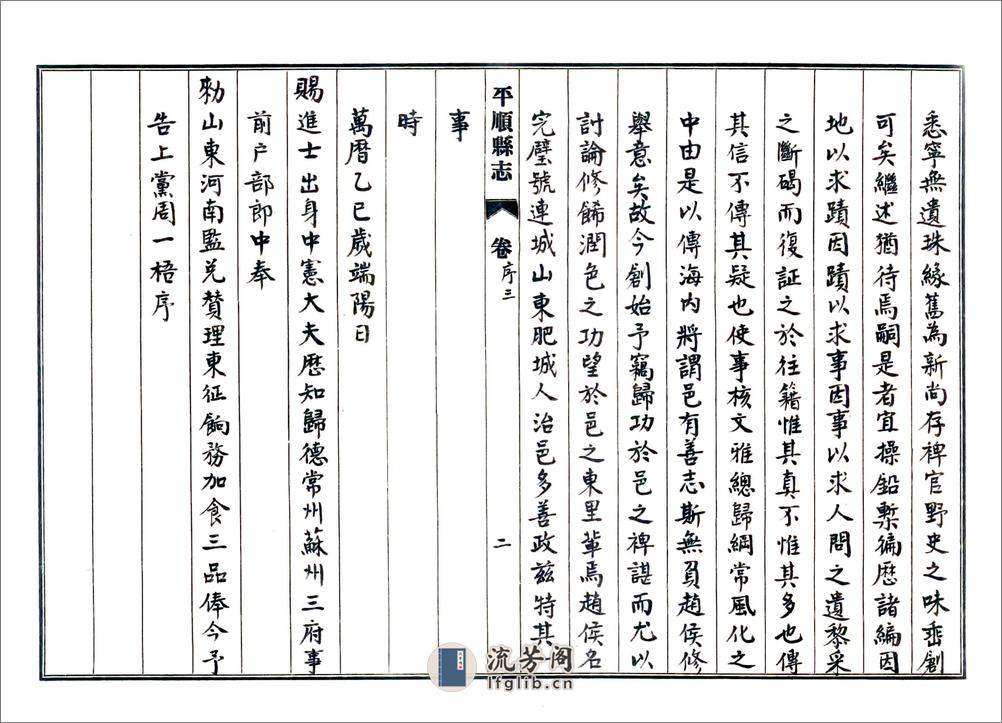 悉寧無遺珠緣舊為新尚存裨官野史之味垂創
可矣繼述猶待焉嗣是者宜操鉛槧徧歷諸編因
地以求蹟因蹟以求事因事以求人問之遺黎采
之斷碣而復証之於往籍惟其真不惟其多也傳
其信不傳其疑也使事核文雅總歸綱常風化之
中由是以傳海內將謂邑有善志斯無負趙侯修
舉意矣故今創始予竊歸功於邑之裨諶而尤以
討論修餙潤色之功望於邑之東里輩焉趙侯名
完璧號連城山東肥城人治邑多善政茲特其
平順縣志
卷
序三
二
事
時
萬曆乙巳歲端陽日
賜進士出身中憲大夫歷知歸德常州蘇州三府事
前户部郎中奉
勑山東河南監兌贊理東征餉務加食三品俸今予
告上黨周一梧序
流芳阁
lfglib.cn